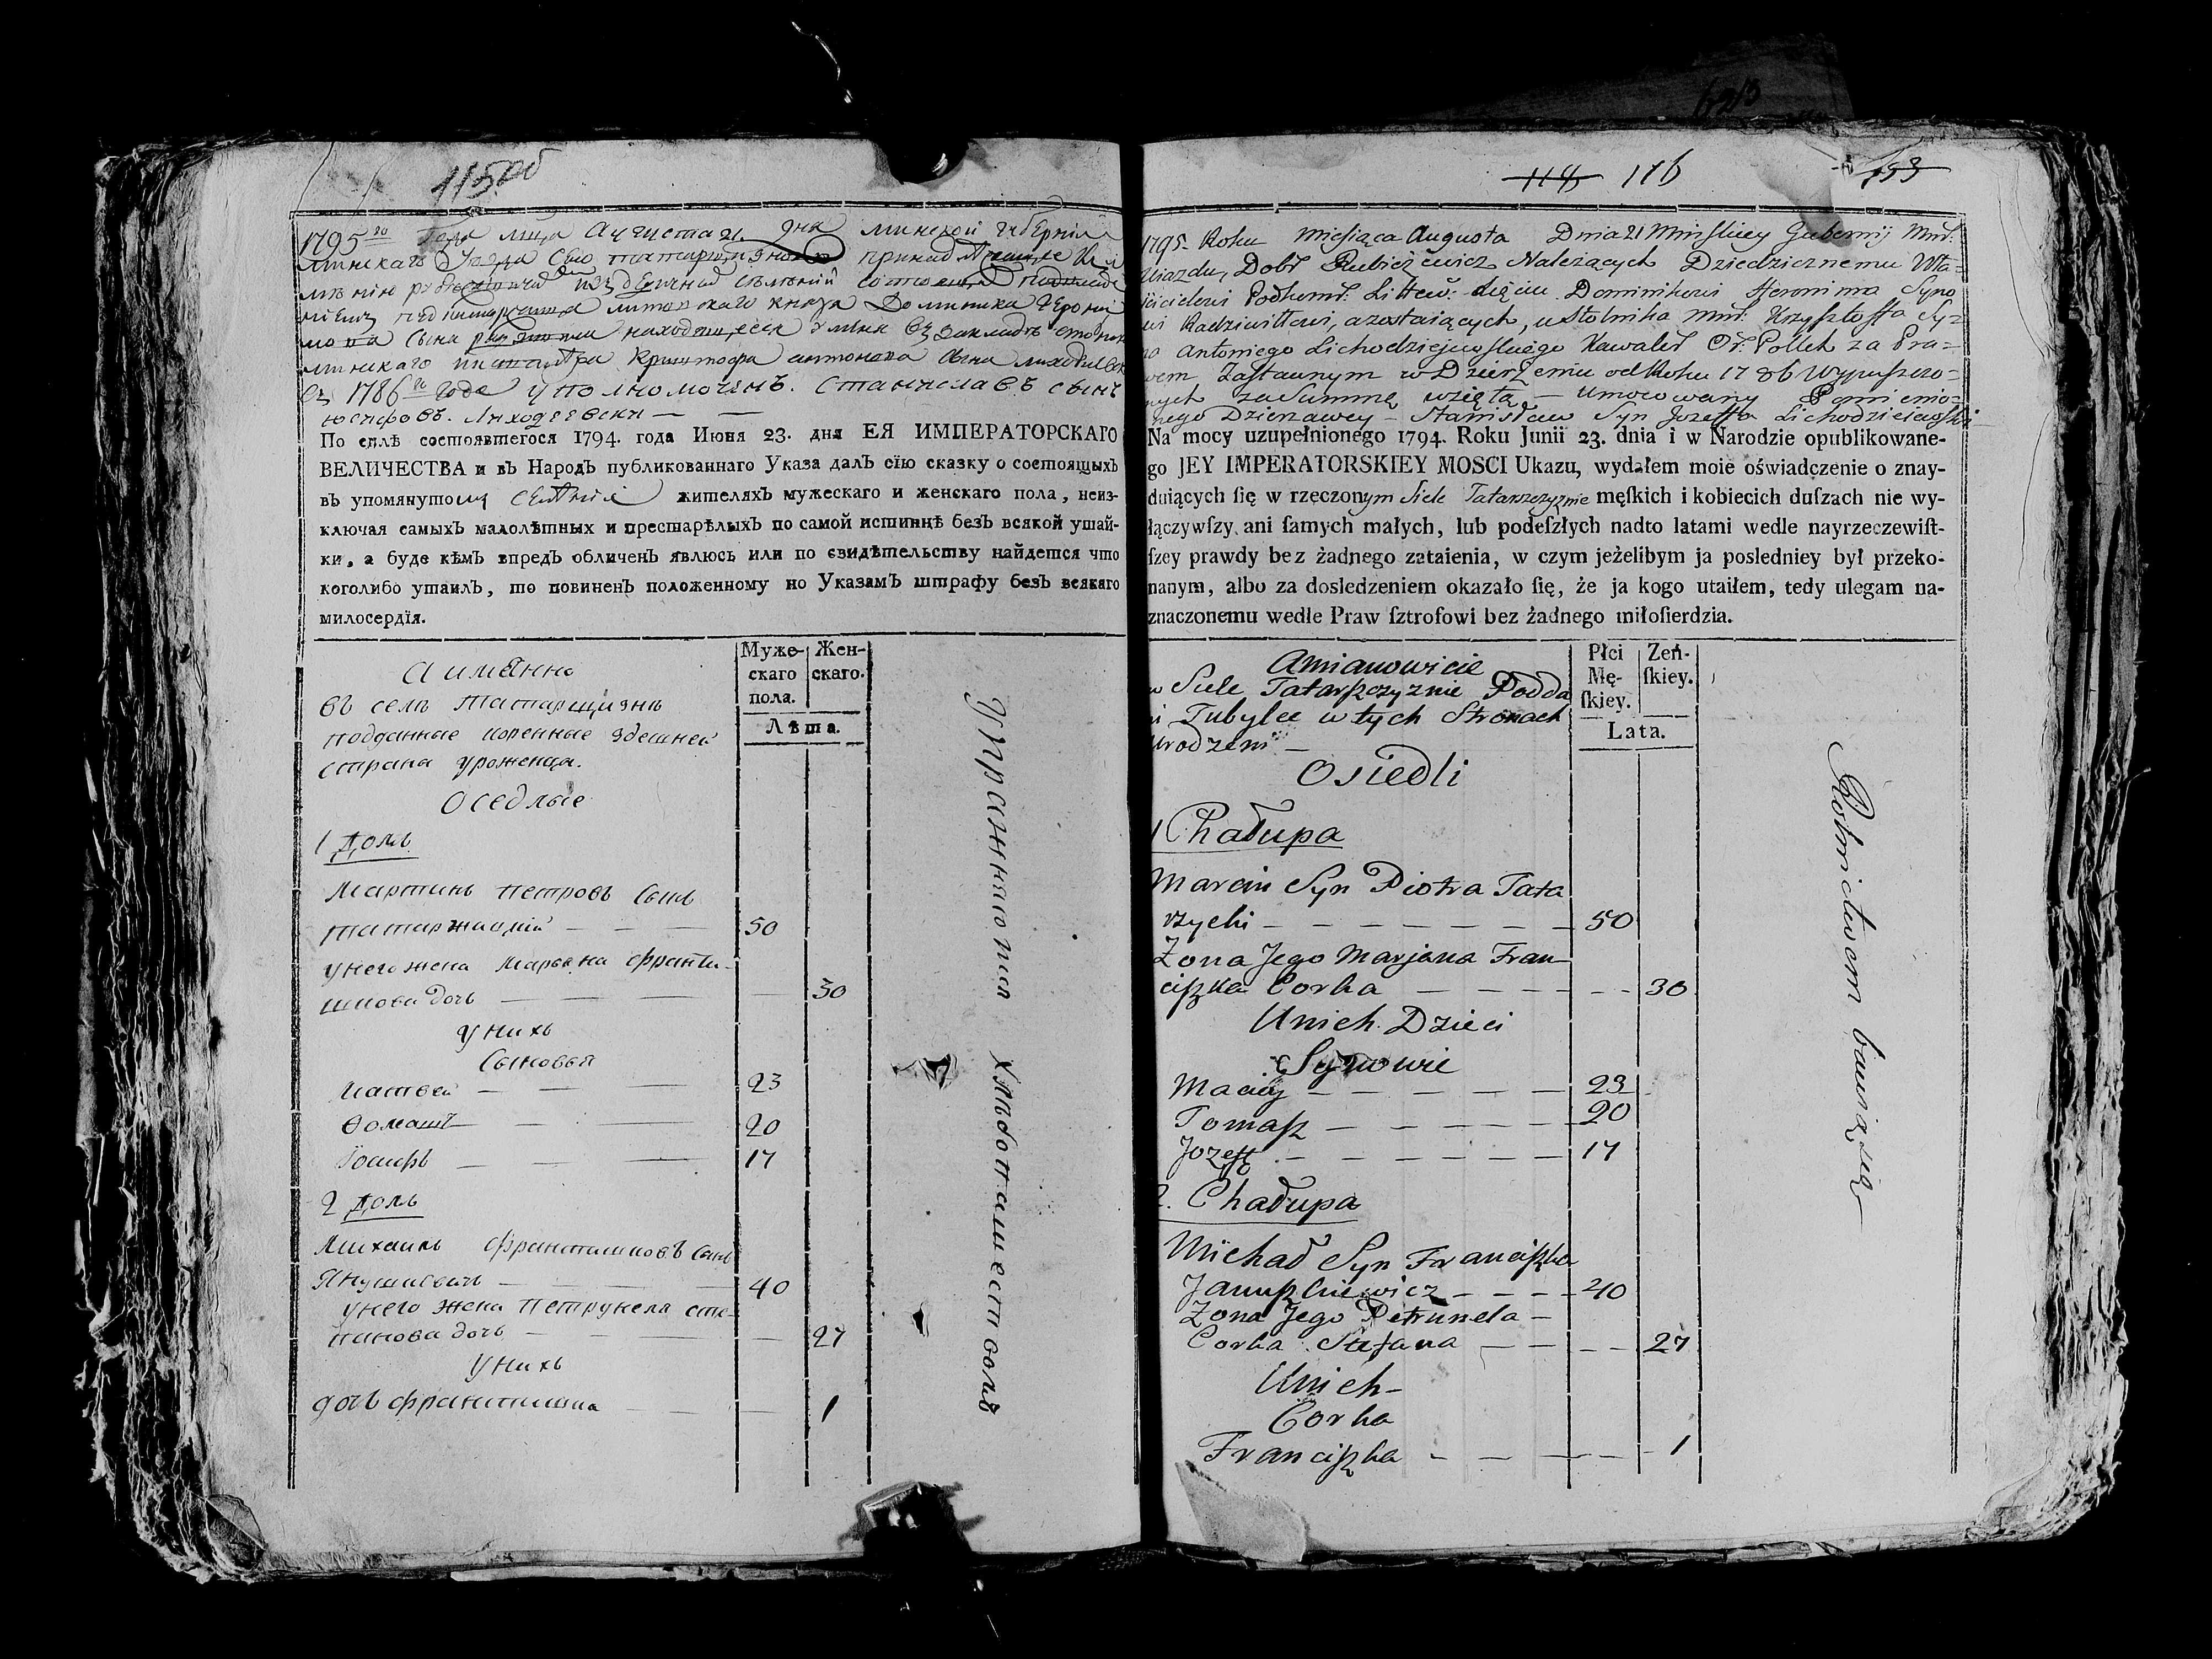 115 об
1795го Года мца Августа 21 дня минской губернии
минскаго уезда
Къ 1786го Года уполномоченъ. Станиславъ сынъ
юсифовъ. Лиходзеевски — —
По силѣ состоявшегося 1794. года Июня 23. дня ЕЯ ИМПЕРАТОРСКАГО
ВЕЛИЧЕСТВА и въ НародЪ публикованнаго Указа далЪ сїю сказку о состоящыхЪ
въ упомянутомъ селѣнїи жителяхЪ мужескаго и женскаго пола, неиз-
ключая самыхЪ малолѣтныхЪ и престарѣлыхЪ по самой истиннѣ безЪ всякой утай-
ки, а буде кѣмЪ впредЪ обличенЪ явлюсь или по свидѣтельству найдется что
коголибо утаилЪ, то повиненЪ положенному по УказамЪ штрафу безЪ всякаго
милосердїя.
Муже-скаго пола. Жен-скаго.
Лѣта.
А имянно
въ селѣ Татарщизнѣ
подданные коренные здешней
страны уроженца.
Оседлые
1 домъ
Мартинъ петровъ сынъ
татаржицкій — — — 50
у него жена Марьяна франти-
шкова дочь — — — 30
у нихъ
Сыновья
Матвей — — — 23
Ѳомашъ — — — 20
Іосифъ — — — 17
2 домъ
Михаилъ франтишковъ сынъ
Янушкевичъ — — — 40
у него жена Петрунеля сте-
панова дочь — — — 27
у нихъ
дочь франтишка — — — 1
упражняются хлѣбопашествомъ
118 116
193
1795. Roku Miesiąca Augusta Dnia 21 Minskiey Gubernij Minš:
Uiazdu, Dobr Rubieżewicz Należących Dziedzicznemu Wła-
ścicielowi Podkomř: Littew: Xięciu Dominikowi Heronima Syno
wi Radziwiłłowi, a zostaiących, u Stolnika Minš: Krzysztoffa Sy-
na Antoniego Lichodziejewskiego Kawaleř Oř: Polsk za Pra-
wem Zastawnym w Dzierżeniu od Roku 1786 Wypuszczo-
nych za Summę wziętą — Umocowany Pomienio-
nego Dzierzawcy — Stanisław Syn Jozeffa Lichodziejewski
Na mocy uzupełnionego 1794. Roku Junii 23. dnia i w Narodzie opublikowane-
go JEY IMPERATORSKIEY MOSCI Ukazu, wydałem moie oświadczenie o znay-
duiących ſię w rzeczonym Siele Tatarszczyznie męſkich i kobiecich duſzach nie wy-
łączywſzy ani ſamych małych, lub podeſzłych nadto latami wedle nayrzeczewiſt-
ſzey prawdy bez żadnego zataienia, w czym jeżelibym ja posledniey był przeko-
nanym, albo za dosledzeniem okazało ſię, że ja kogo utaiłem, tedy ulegam na-
znaczonemu wedle Praw ſztrofowi bez żadnego miłoſierdzia.
Płci Mę-ſkiey. Zeń-ſkiey.
Lata.
Amianowicie
w Siele Tatarszczyznie Podda
ni Tubylce w tych Stronach
Urodzeni —
Osiedli
1 Chałupa
Marcin Syn Piotra Tata
rzycki — — — — — 50
Zona Jego Marjana Fran-
ciszka Corka — — — 30
Unich Dzieci
Synowie
Maciey — — — — — 23
Tomasz — — — — — 20
Jozeff — — — — — 17
2. Chałupa
Michał Syn Franciszka
Januszkiewicz — — — 40
Zona Jego Petrunela —
Corka Stefana — — — 27
Unich —
Corka
Franciszka — — — 1
Rolnictwem bawią się